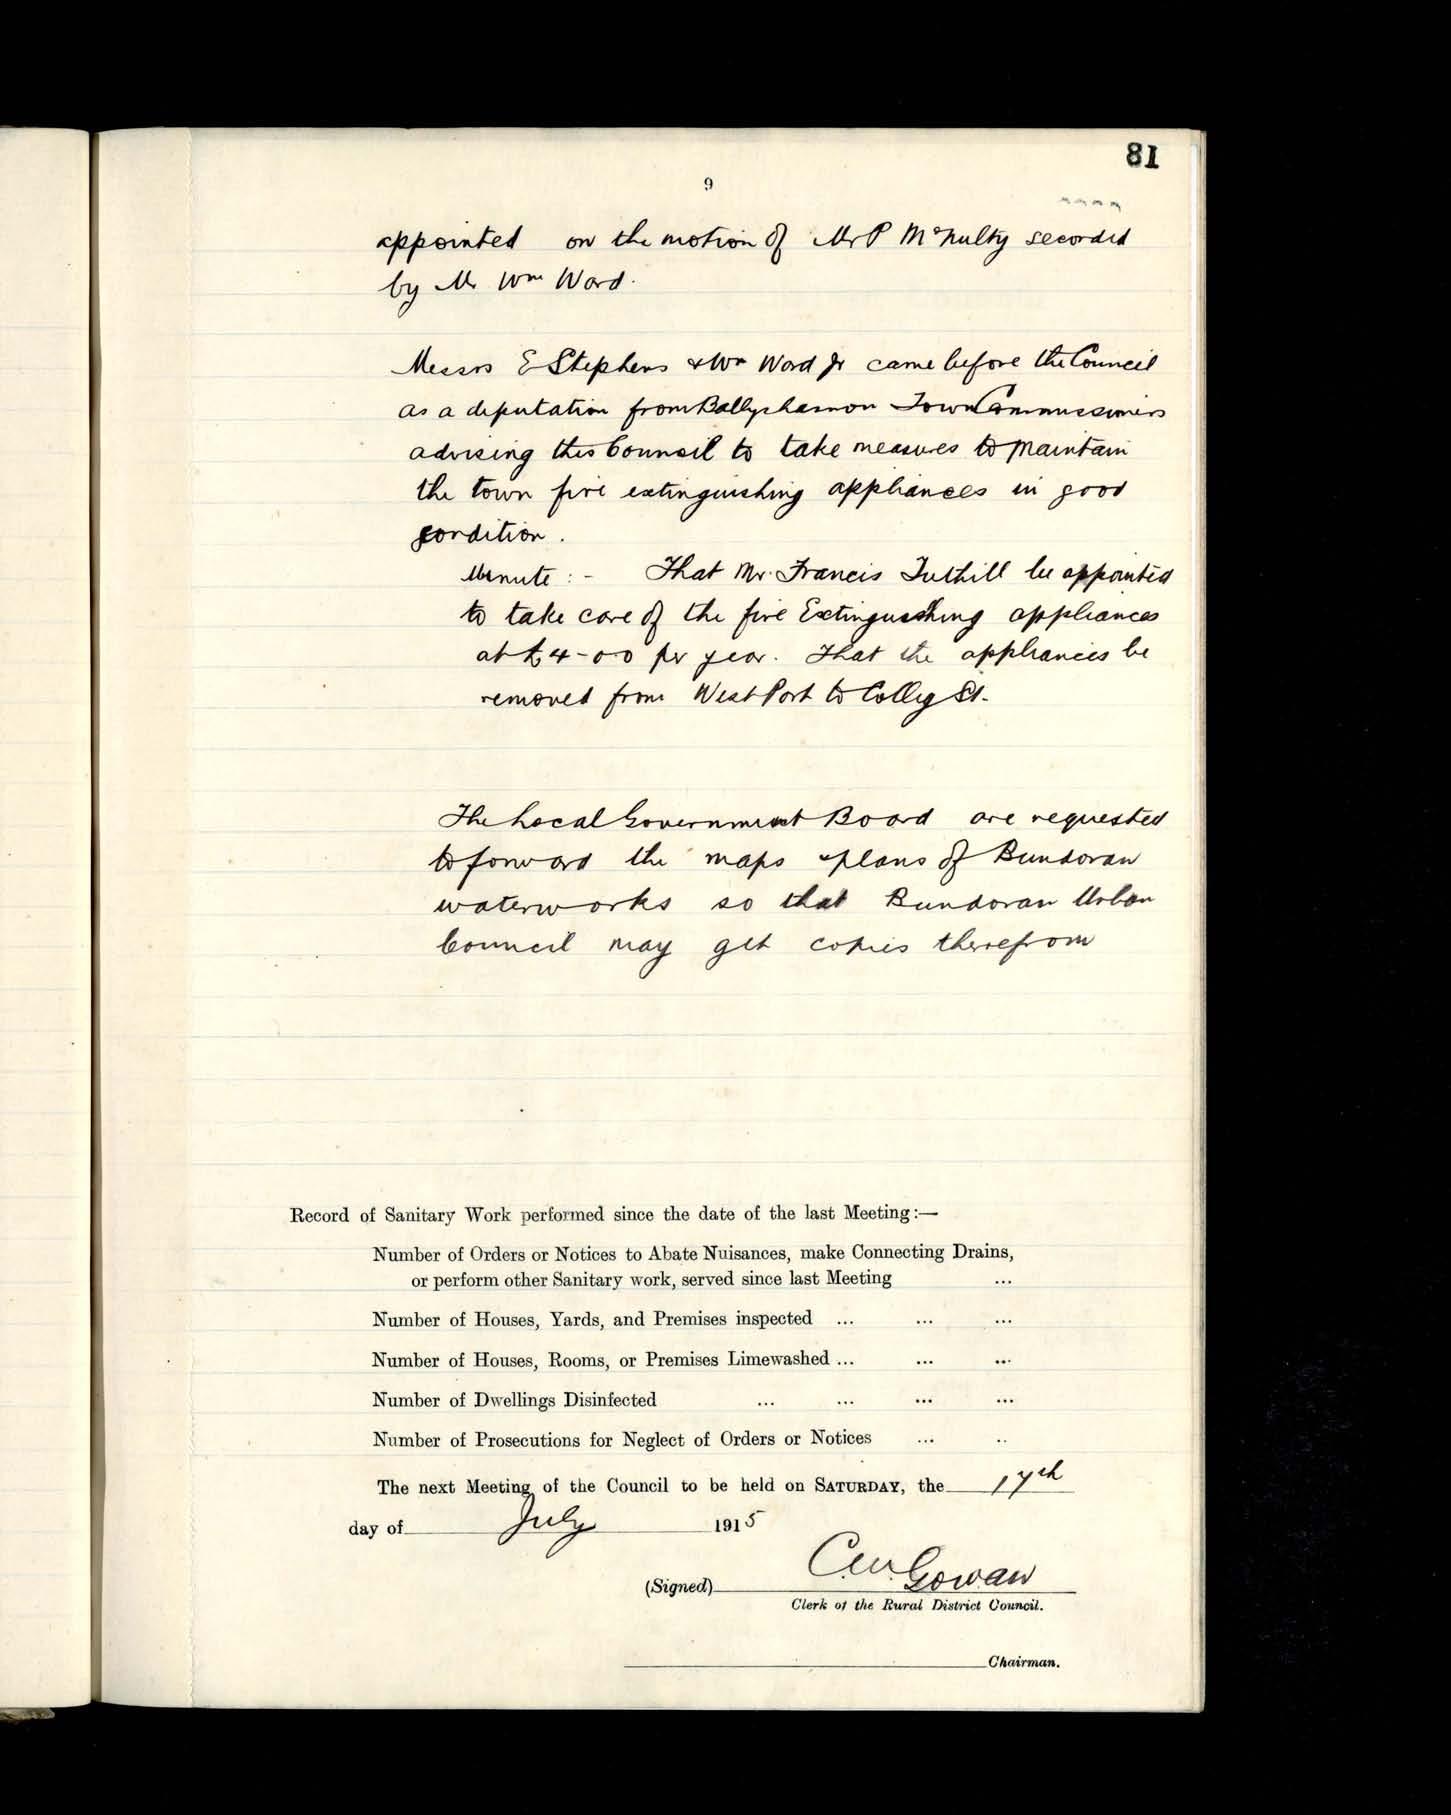 81
9
appointed on the motion of Mr P McNulty seconded
by Mr Wm Ward.
Messrs E Stephens & Wm Ward Jr came before the Council
as a deputation from Ballyshannon Town Commissioners
advising this Council to take measures to maintain
the town fire extinguishing appliances in good
condition.
Minute :- That Mr. Francis Tuthill be appointed
to take care of the fire Extinguishing appliances
at £4-0-0 per year. That the appliances be
removed from West Port to College St.
The Local Government Board are requested
to forward the maps & plans of Bundoran
waterworks so that Bundoran Urban
Council may get copies therefrom
Record of Sanitary Work performed since the date of the last Meeting:—
Number of Orders or Notices to Abate Nuisances, make Connecting Drains,
or perform other Sanitary work, served since last Meeting ...
Number of Houses, Yards, and Premises inspected ... ... ...
Number of Houses, Rooms, or Premises Limewashed ... ... ...
Number of Dwellings Disinfected ... ... ... ...
Number of Prosecutions for Neglect of Orders or Notices ... ..
The next Meeting of the Council to be held on SATURDAY, the 17th
day of July 1915
(Signed) C.W. Gowan
Clerk of the Rural District Council.
Chairman.